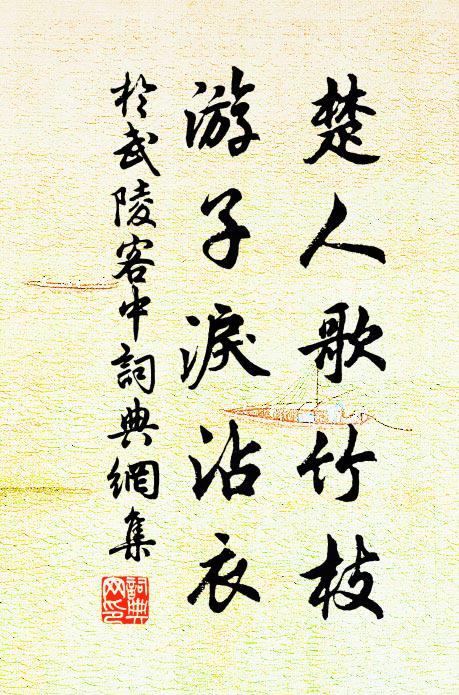 楚人歌竹枝
游子淚沾衣
於武陵客中詞典網集
詞典
网印